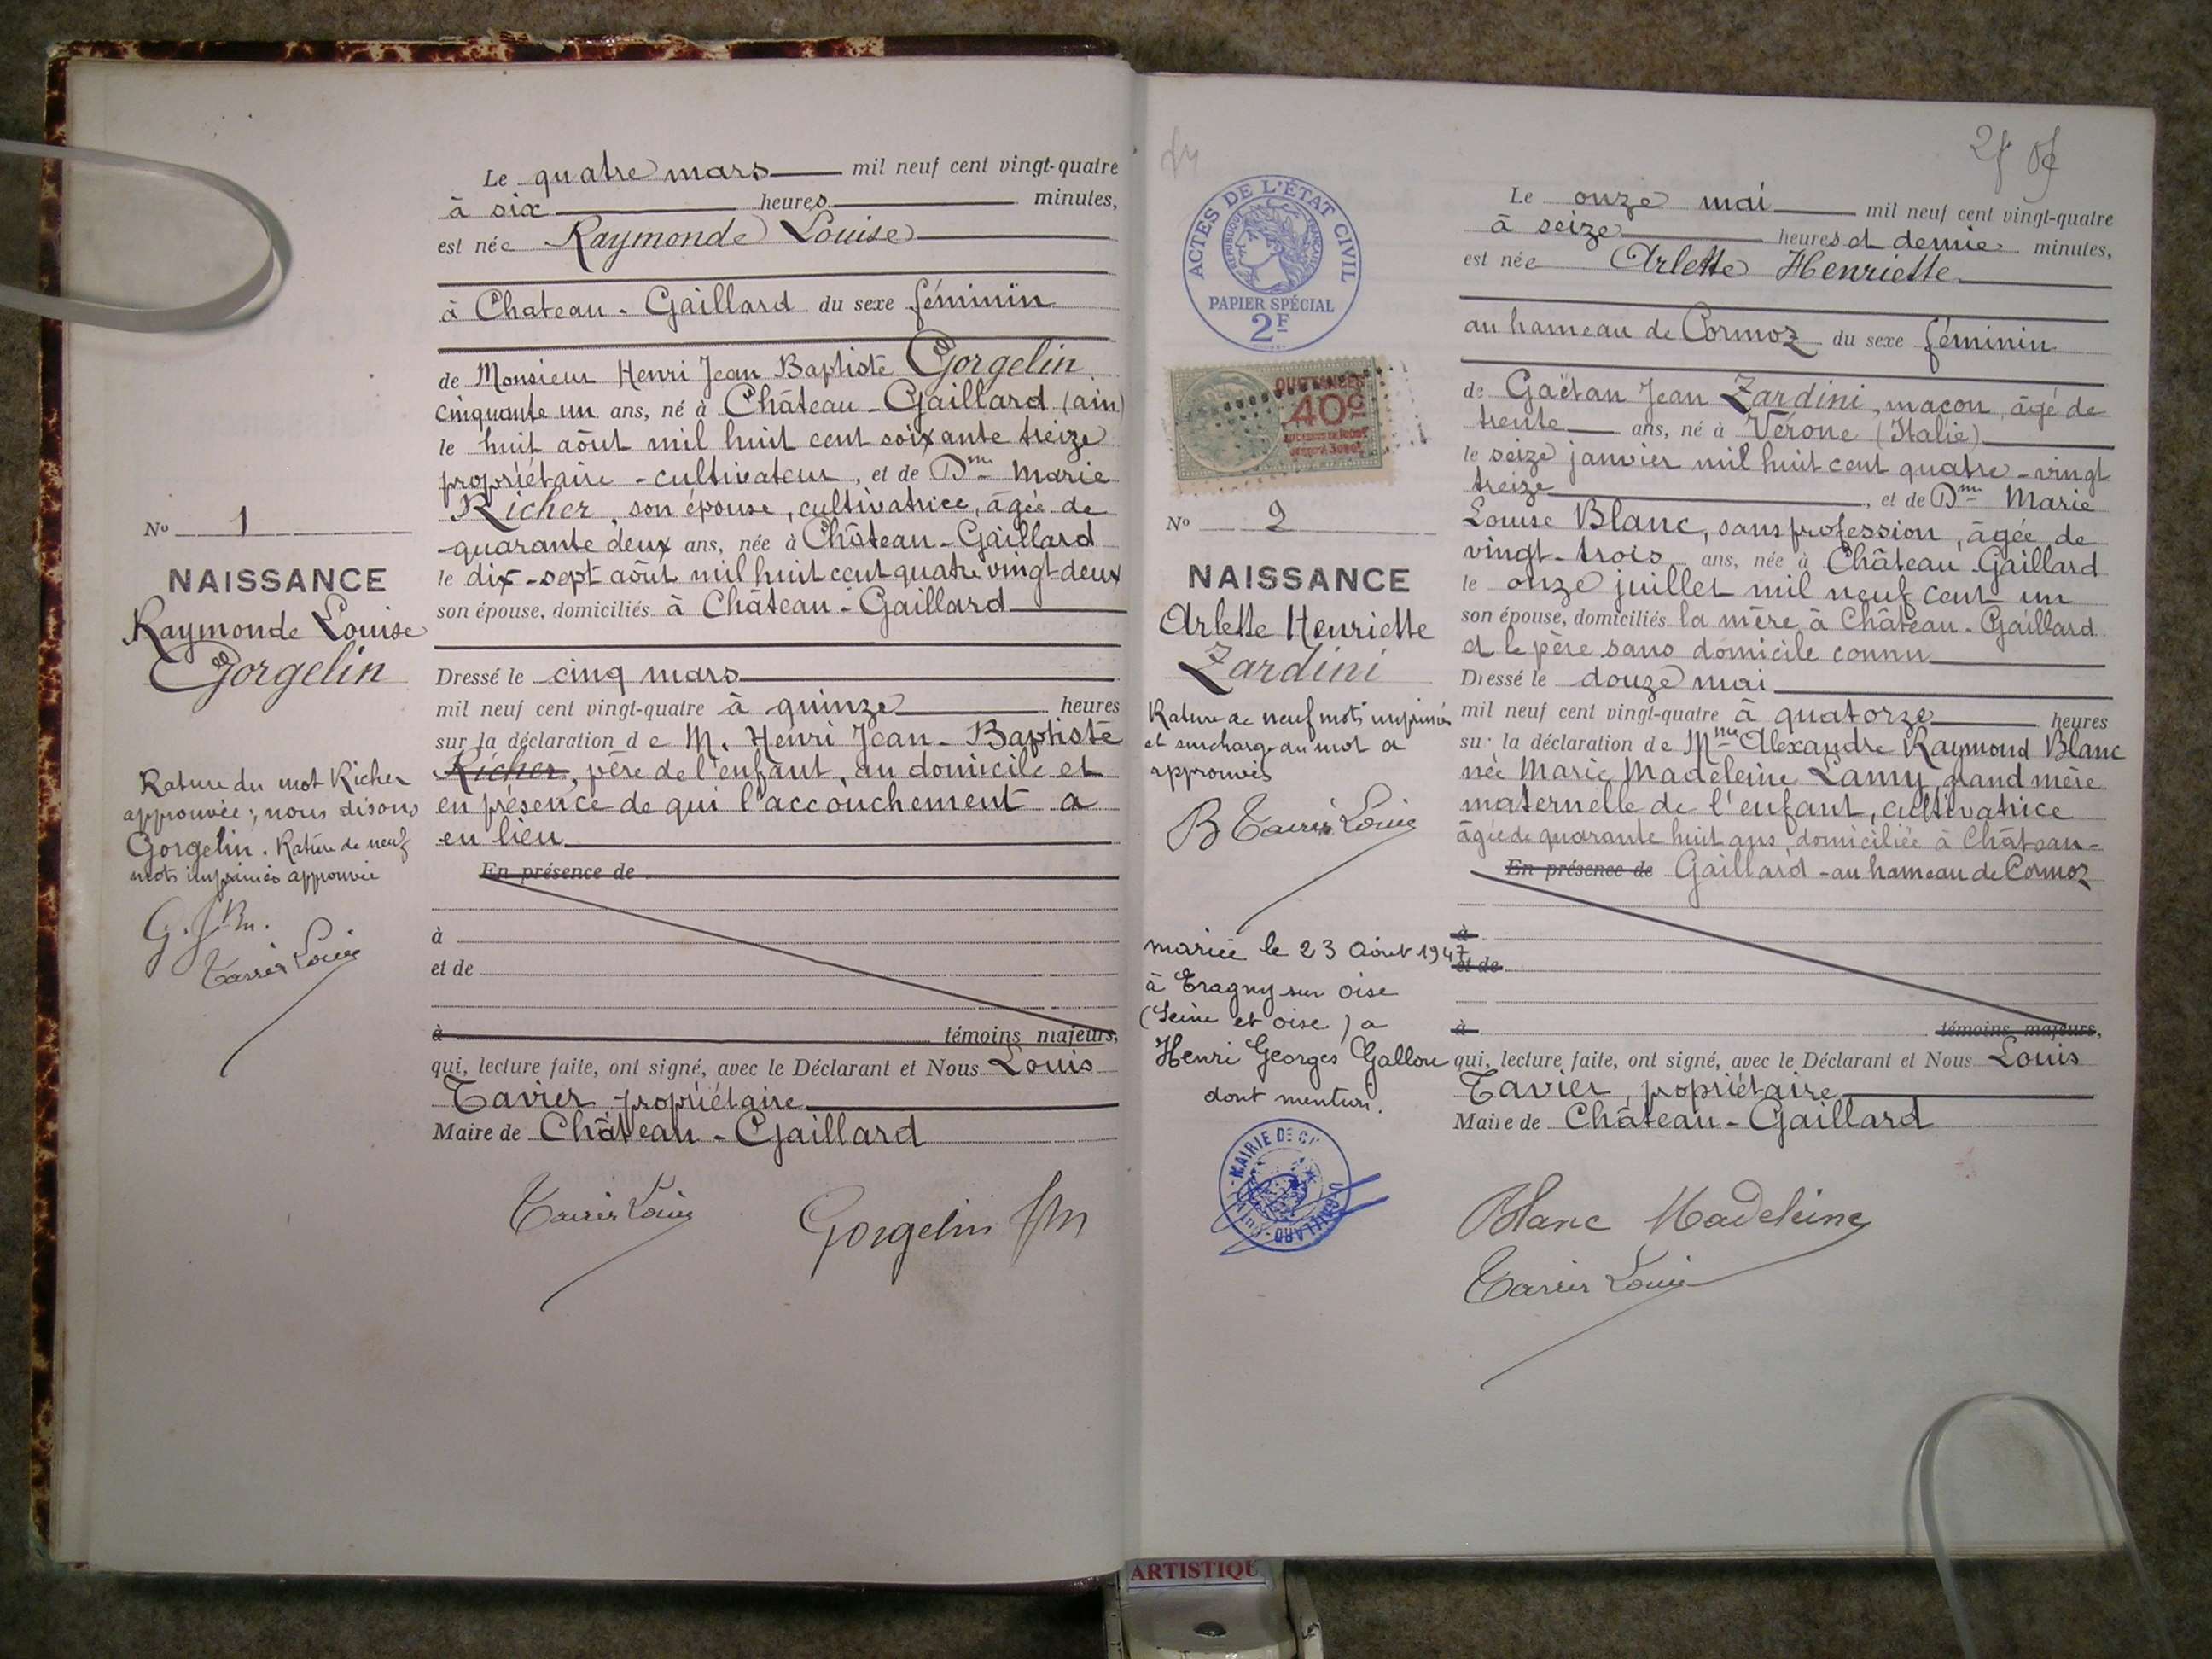 Le quatre mars mil neuf cent vingt-quatre
à six heures minutes,
est née Raymonde Louise
à Chateau-Gaillard du sexe féminin
de Monsieur Henri Jean Baptiste Gorgelin
cinquante un ans, né à Château-Gaillard (ain)
le huit aôut mil huit cent soixante treize
propriétaire-cultivateur, et de Dme Marie
Richer, son épouse, cultivatrice, âgée de
quarante deux ans, née à Château-Gaillard
le dix-sept aôut mil huit cent quatre vingt-deux
son épouse, domiciliés à Château-Gaillard
Dressé le cinq mars
mil neuf cent vingt-quatre à quinze heures
sur la déclaration de M. Henri Jean-Baptiste
Richer, père de l'enfant, au domicile et
en présence de qui l'accouchement a
eu lieu
En présence de
à
et de
à témoins majeurs,
qui, lecture faite, ont signé, avec le Déclarant et Nous Louis
Tavier propriétaire
Maire de Château-Gaillard
Tavier Louis
Gorgelin
No 1
NAISSANCE
Raymonde Louise
Gorgelin
Rature du mot Richer
approuvée; nous disons
Gorgelin. Rature de neuf
mots imprimés approuvée
G. J. Bn.
Tavier Louis
ACTES DE L'ÉTAT CIVIL
RÉPUBLIQUE FRANÇAISE
PAPIER SPÉCIAL
2F
QUITTANCES
40c
No 2
NAISSANCE
Arlette Henriette
Zardini
Rature de neuf mots imprimés
et surcharge du mot a
approuvés
B Tavier Louis
mariée le 23 Août 1947
à Eragny sur Oise
(Seine et Oise) a
Henri Georges Gallou
dont mention.
MAIRIE DE
GAILLARD
Le onze mai mil neuf cent vingt-quatre
à seize heures et demie minutes,
est née Arlette Henriette
au hameau de Cormoz du sexe féminin
de Gaëtan Jean Zardini, maçon, âgé de
trente ans, né à Vérone (Italie)
le seize janvier mil huit cent quatre-vingt
treize, et de Dme Marie
Louise Blanc, sans profession, âgée de
vingt-trois ans, née à Château-Gaillard
le onze juillet mil neuf cent un
son épouse, domiciliés la mère à Château-Gaillard
et le père sans domicile connu
Dressé le douze mai
mil neuf cent vingt-quatre à quatorze heures
sur la déclaration de Mme Alexandre Raymond Blanc
née Marie Madeleine Lamy, grand mère
maternelle de l'enfant, cultivatrice
âgée de quarante huit ans domiciliée à Château-
En présence de Gaillard-au hameau de Cormoz
à
et de
à témoins majeurs,
qui, lecture faite, ont signé, avec le Déclarant et Nous Louis
Tavier, propriétaire
Maire de Château-Gaillard
Blanc Madeleine
Tavier Louis
ARTISTIQU